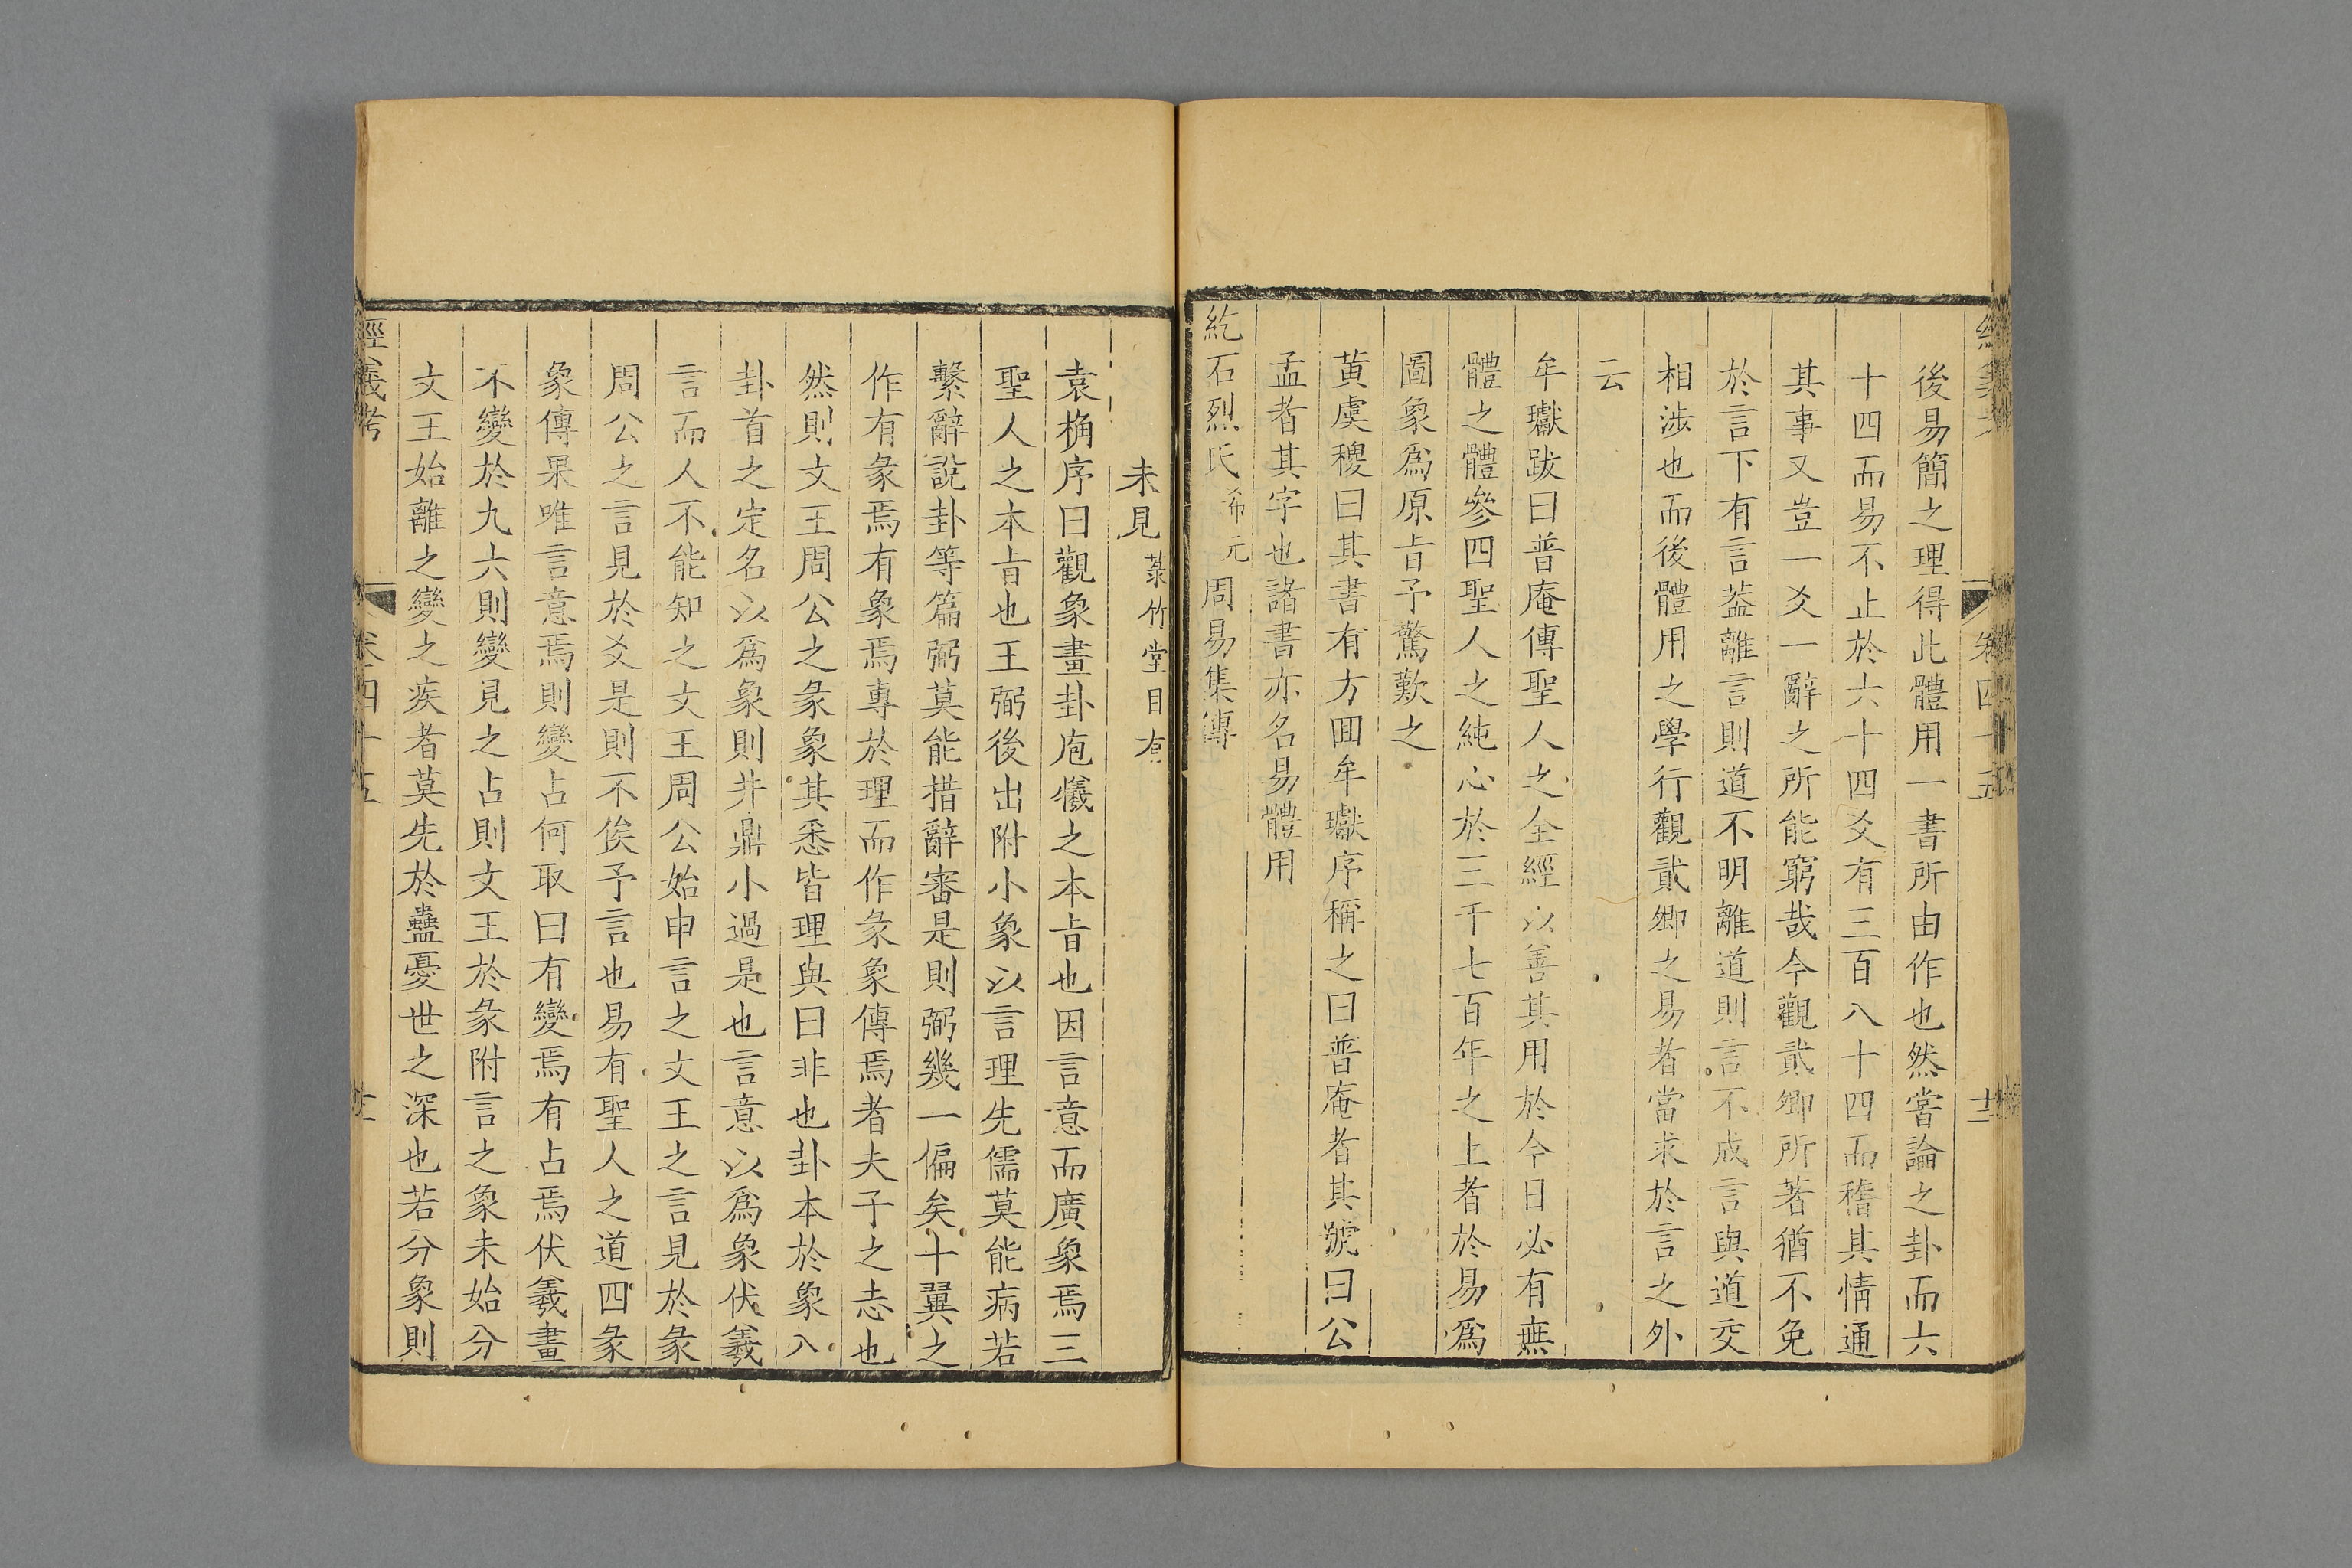 後易簡之理得此體用一書所由作也然嘗論之卦而六
十四而易不止於六十四爻有三百八十四而稽其情通
其事又豈一爻一辭之所能窮哉今觀貳卿所著猶不免
於言下有言葢離言則道不明離道則言不成言與道交
相涉也而後體用之學行觀貳卿之易者當求於言之外
云
牟巘跋曰普庵傳聖人之全經以善其用於今日必有無
體之體參四聖人之純心於三千七百年之上者於易爲
圖象爲原旨予驚歎之
黄虞稷曰其書有方回牟巘序稱之曰普庵者其號曰公
孟者其字也諸書亦名易體用
紇石烈氏希元周易集傳
未見菉竹堂目有
袁桷序曰觀象畫卦庖犧之本旨也因言意而廣象焉三
聖人之本旨也王弼後出附小象以言理先儒莫能病若
繫辭說卦等篇弼莫能措辭審是則弼幾一偏矣十翼之
作有彖焉有象焉專於理而作彖象傳焉者夫子之志也
然則文王周公之彖象其悉皆理與曰非也卦本於象八
卦首之定名以爲象則井鼎小過是也言意以爲象伏羲
言而人不能知之文王周公始申言之文王之言見於彖
周公之言見於爻是則不俟予言也易有聖人之道四彖
象傳果唯言意焉則變占何取曰有變焉有占焉伏羲畫
不變於九六則變見之占則文王於彖附言之象未始分
文王始離之變之疾者莫先於蠱憂世之深也若分象則
經義考
卷四十五